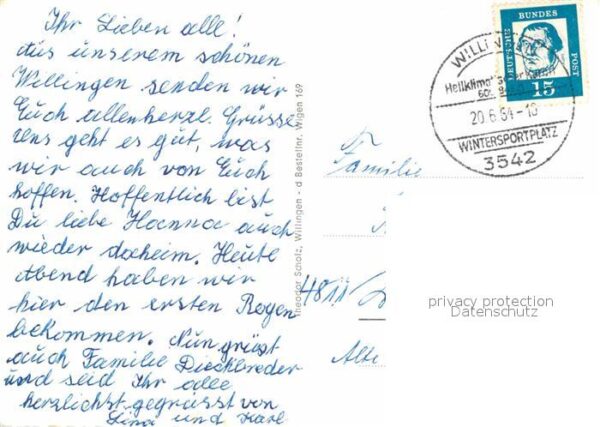 Ihr Lieben alle!
Aus unserem schönen
Willingen senden wir
Euch allen herzl. Grüsse
Uns geht es gut, was
wir auch von Euch
hoffen. Hoffentlich bist
Du liebe Hanna auch
wieder daheim. Heute
Abend haben wir
hier den ersten Regen
bekommen. Nun grüßt
auch Familie Dieckbreder
und seid Ihr alle
herzlichst gegrüsst von
Lina und Karl
Theodor Scholz, Willingen - d Bestellnr. Wigen 169
Familie
4811
Alte
WILLIN
Heilklimatischer
20.6.64-10
WINTERSPORTPLATZ
3542
DEUTSCHE
BUNDES
POST
15
privacy protection
Datenschutz